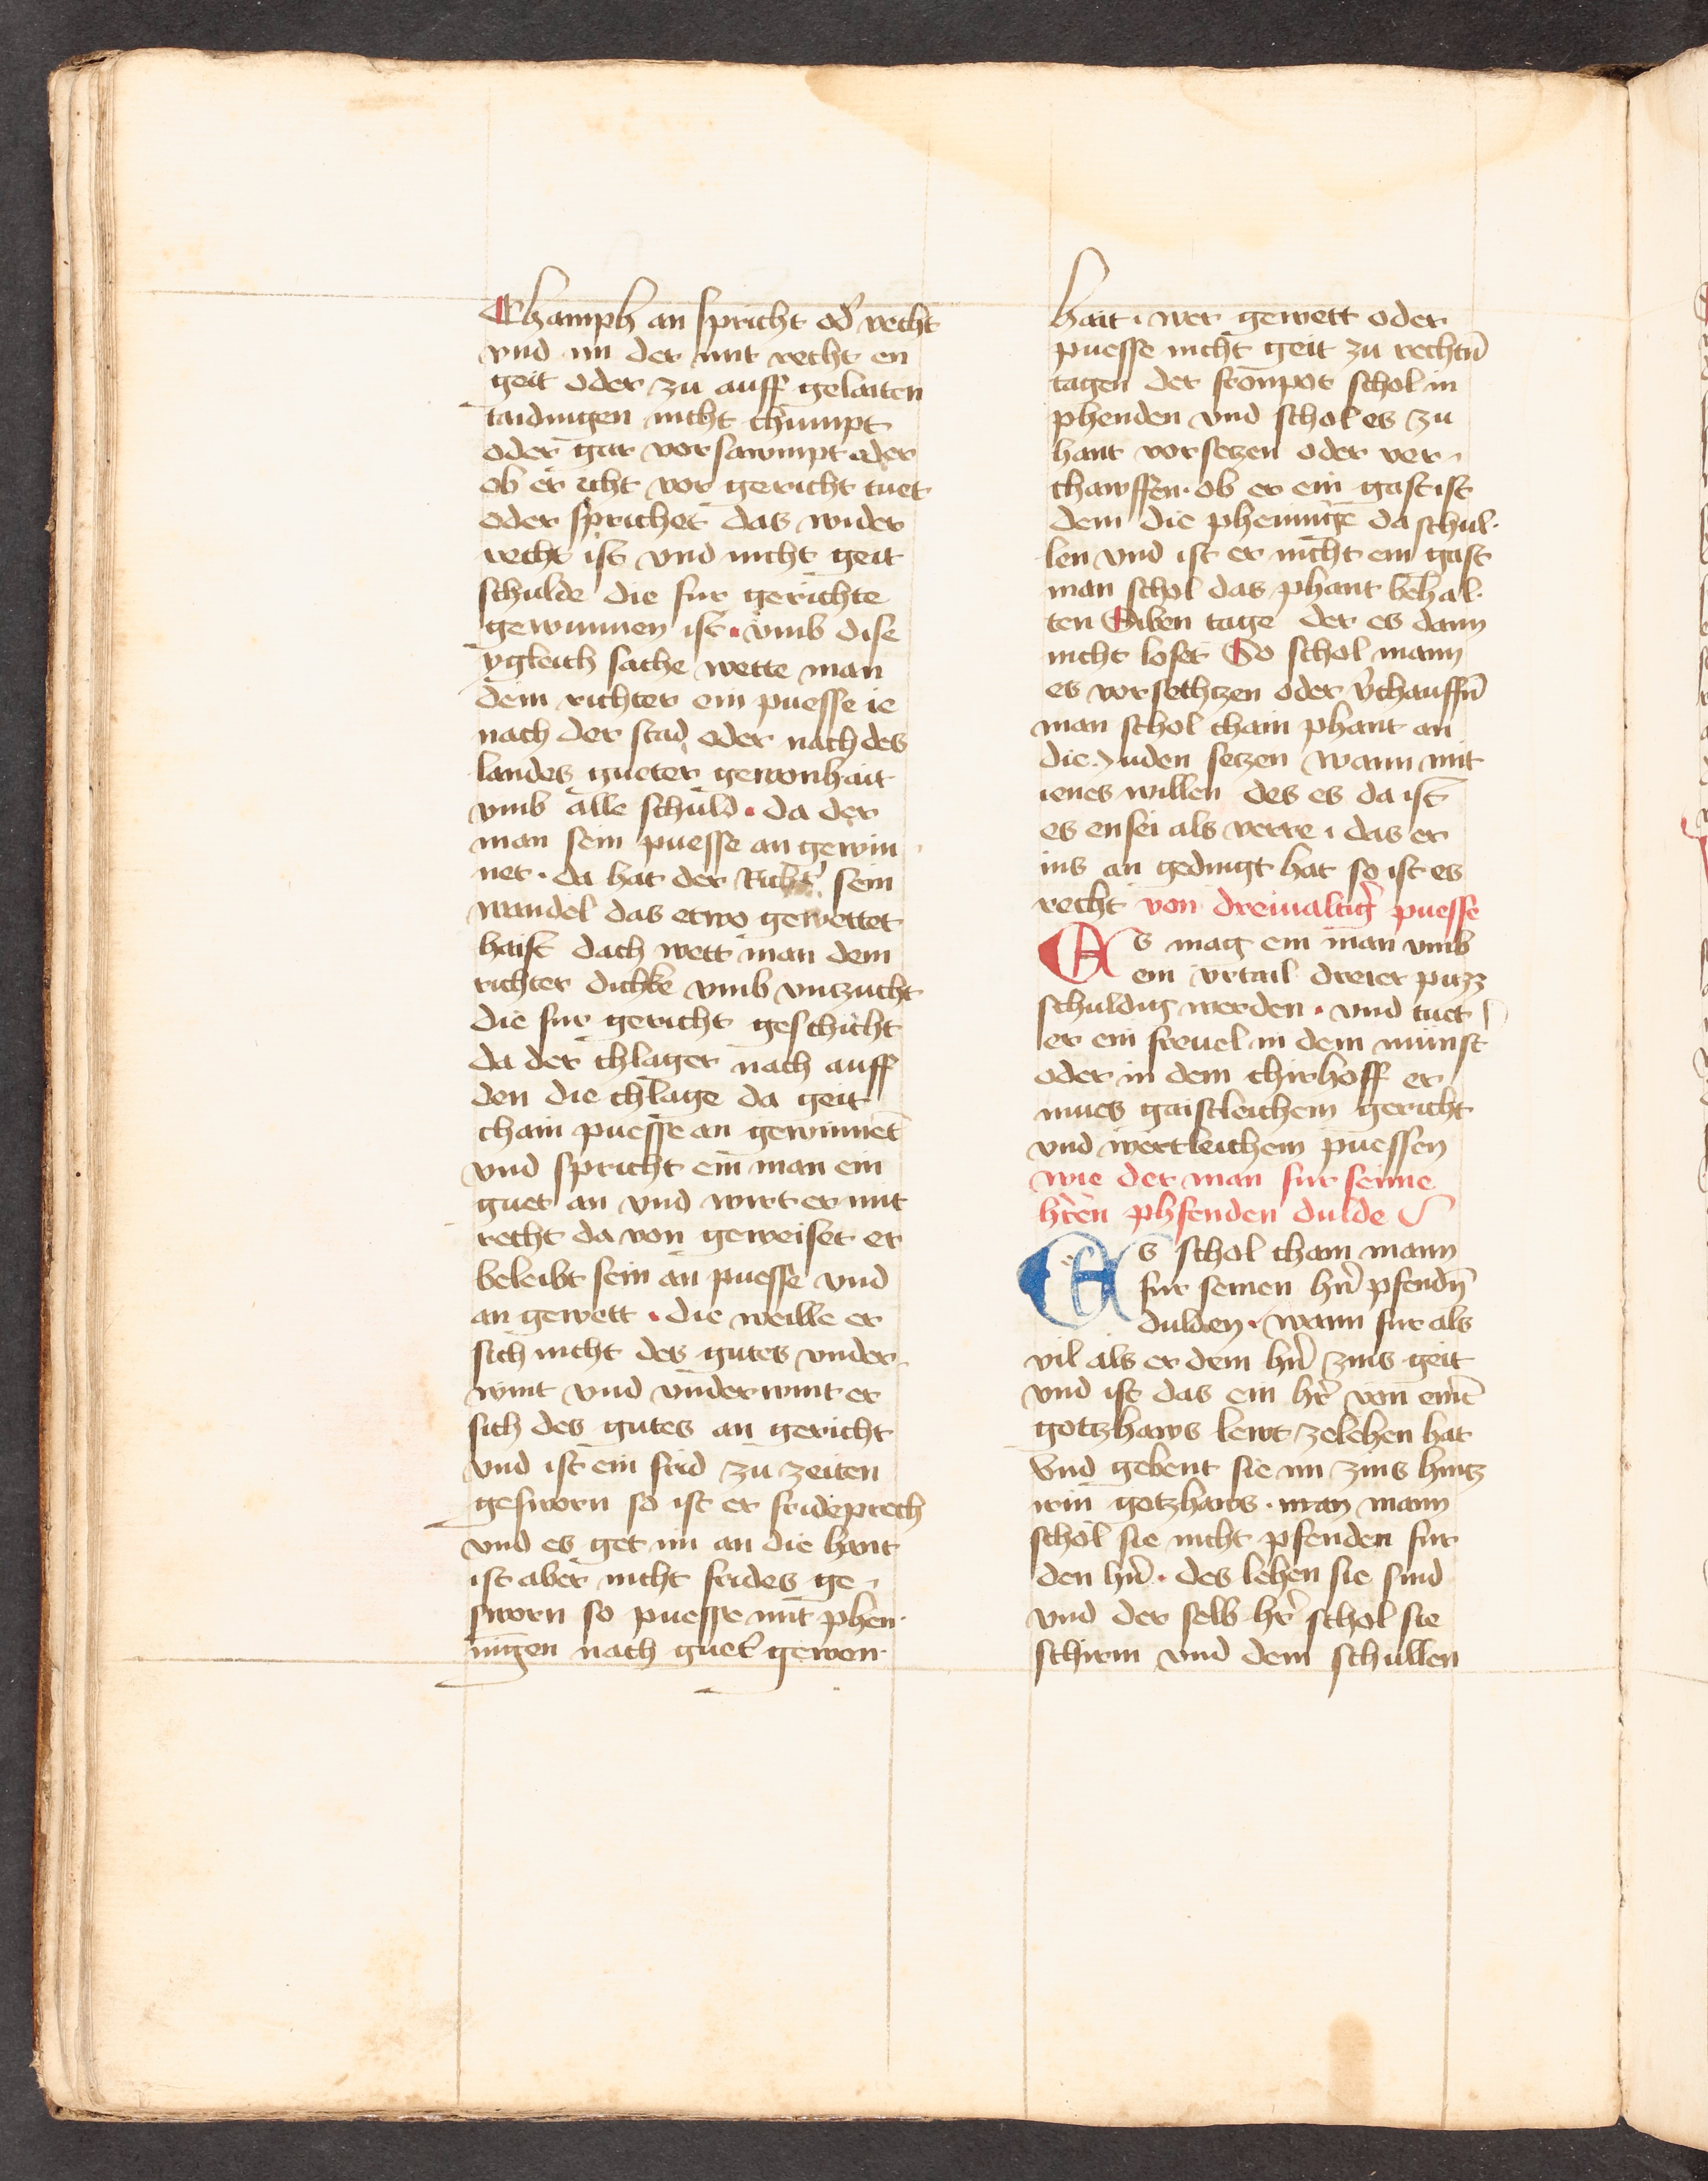 Champh an spricht od̕ recht
vnd im der mit recht en
geit oder zu auff gelaiten
taidingen nicht chumpt
oder gar vorsawmpt oder
ob er icht vor gericht tuet
oder sprichet das wider
recht ist vnd nicht geit
schulde die fur gerichte
gewunnen ist · vmb dise
ygleich sache wette man
dem richter ein puesse ie
nach der stad oder nach des
landes gueter gewonhait
vmb alle schuld · da der
man sein puesse an gewin
net · da hat der Richt̕ sein
wandel das etwo gewettet
haist dach wett man dem
richter dichke vmb vnczucht
die fur gericht geschicht
da der chlager nach auff
den die chlage da geit
chain puesse an gewinnet
vnd spricht ein man ein
guet an vnd wirt er mit
recht da von geweiset er
beleibt sein an puesse vnd
an gewett · die weille er
sich nicht des gutes vnder
wint vnd vnderwint er
sich des gutes an gericht
vnd ist ein frid zu zeiten
gesworn so ist er frideprech
vnd es get im an die hant
ist aber nicht frides ge
sworn so puesse mit phen
nīgen nach guet̕ gewon
hait · wer gewett oder
puesse nicht geit zu rechtn̄
tagen der fronpot schol in
phenden vnd schol es zu
hant vorseczen oder ver
chawffen · ob er ein gast ist
dem die phenninge da schul
len vnd ist er nicht ein gast
man schol das phant behal
ten Siben tage der es dann
nicht loset So schol mann
es vorsethczen oder v̕chauffn̄
man schol chain phant an
die Juden seczen wann mit
ienes willen des es da ist
es ensei als verre · das er
ins an gedingt hat so ist es
recht von dreiualtig̕ puesse
Es mag ein man vmb
ein vrtail dreier pucz
schuldig werden · vnd tuet
er ein freuel in dem munst
oder in dem chirhoff er
mues gaistleichem gericht
vnd wertleichem puessen
wie der man fur seine
hr̕en phfenden dulde
Es schol chain mann
fur seinen hn̕ pfendn̄
dulden · wann fur als
vil als er dem hn̕ zins geit
vnd ist das ein hr̕ von eine̅
gotzhaws lewt zelehen hat
vnd gebent sie im zins hincz
irm gotzhaws · man mann
schol sie nicht pfenden fur
den hn̕ · des lehen sie sind
vnd der selb hr̕ schol sie
schirm vnd dem schullen